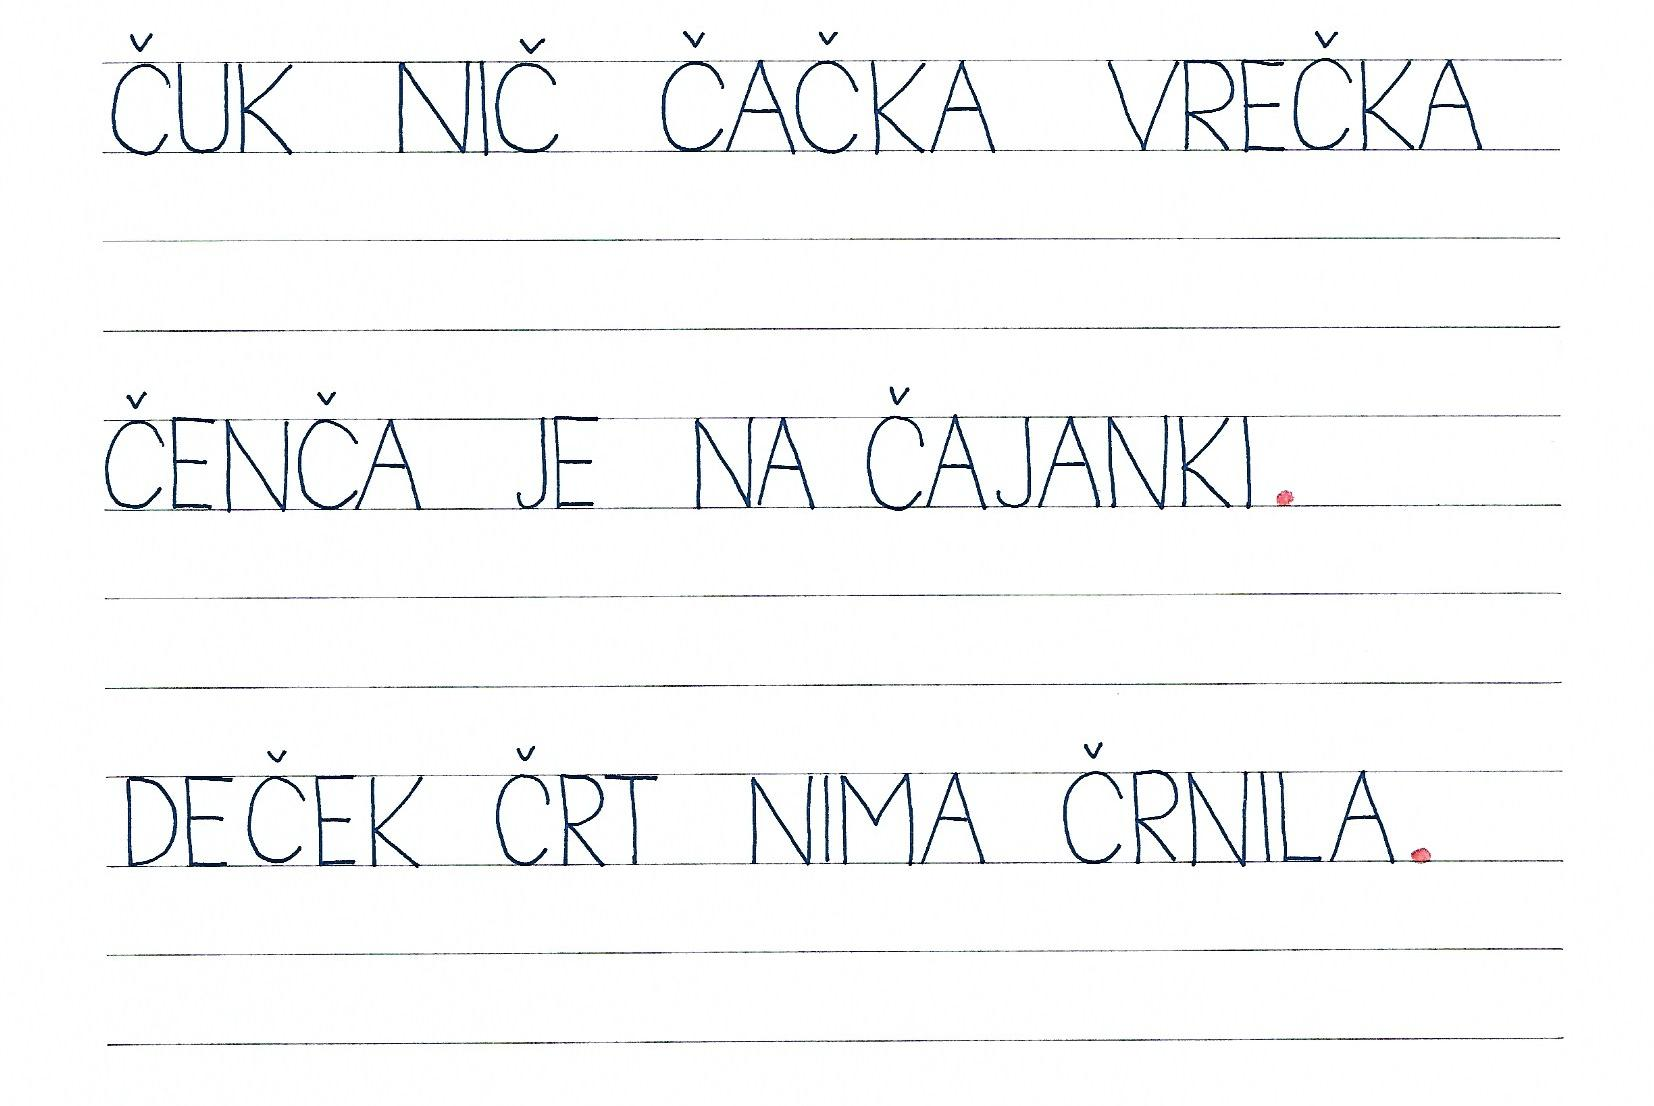 ČUK NIČ ČAČKA VREČKA
ČENČA JE NA ČAJANKI.
DEČEK ČRT NIMA ČRNILA.